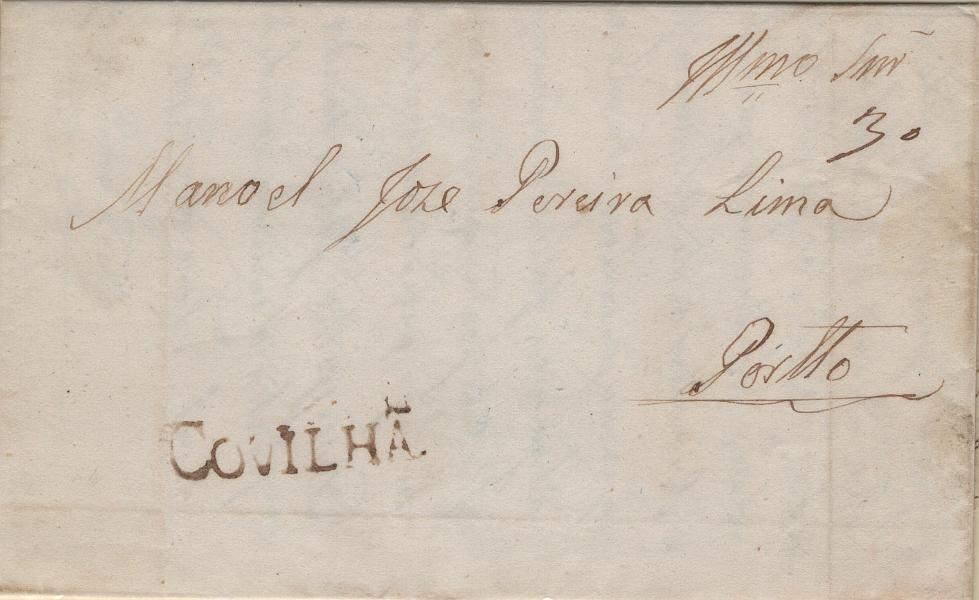 Illmo Snr
30
Manoel Joze Pereira Lima
Portto
COVILHÃ